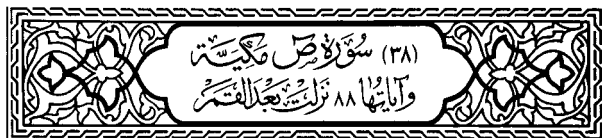 (٣٨) سُورَة صٓ مَكيَّة
وَآيَاتُهَا ٨٨ نَزَلَتْ بَعْدَ القَمَر